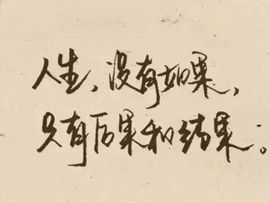 人生，没有如果，
只有后果和结果。